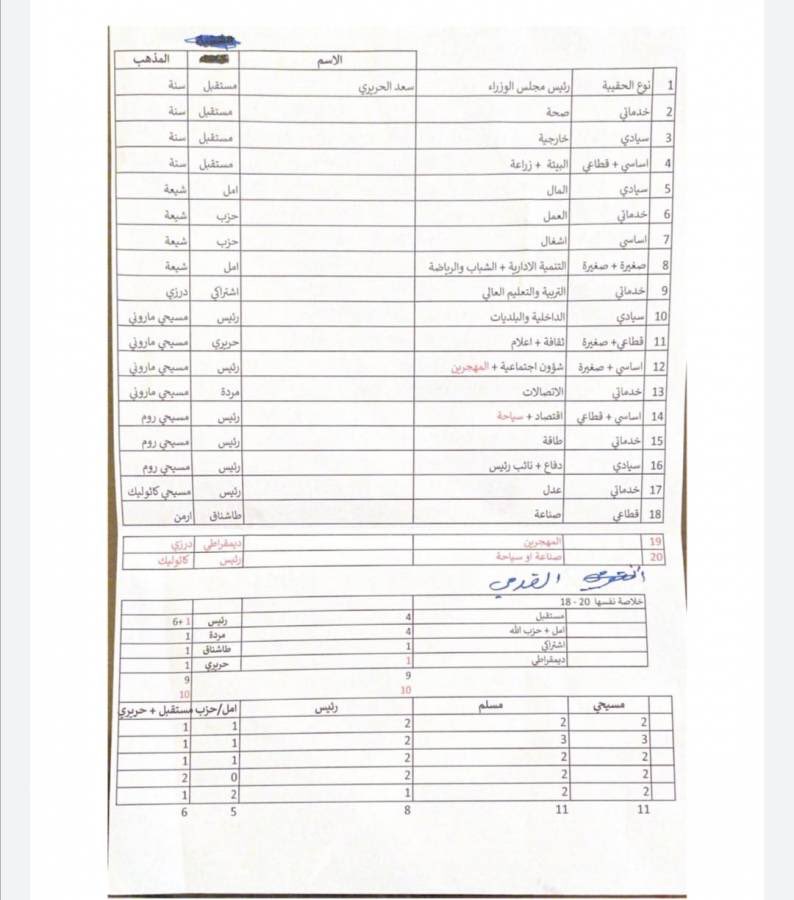 الاسم المذهب
1 نوع الحقيبة رئيس مجلس الوزراء سعد الحريري مستقبل سنة
2 خدماتي صحة مستقبل سنة
3 سيادي خارجية مستقبل سنة
4 اساسي + قطاعي البيئة + زراعة مستقبل سنة
5 سيادي المال امل شيعة
6 خدماتي العمل حزب شيعة
7 اساسي اشغال حزب شيعة
8 صغيرة + صغيرة التنمية الادارية + الشباب والرياضة امل شيعة
9 خدماتي التربية والتعليم العالي اشتراكي درزي
10 سيادي الداخلية والبلديات رئيس مسيحي ماروني
11 قطاعي+ صغيرة ثقافة + اعلام حريري مسيحي ماروني
12 اساسي + صغيرة شؤون اجتماعية + المهجرين رئيس مسيحي ماروني
13 خدماتي الاتصالات مردة مسيحي ماروني
14 اساسي + قطاعي اقتصاد + سياحة رئيس مسيحي روم
15 خدماتي طاقة رئيس مسيحي روم
16 سيادي دفاع + نائب رئيس رئيس مسيحي روم
17 خدماتي عدل رئيس مسيحي كاثوليك
18 قطاعي صناعة طاشناق ارمن
19 المهجرين ديمقراطي درزي
20 صناعة او سياحة رئيس كاثوليك
القدمي
خلاصة نفسها 20 - 18
مستقبل 4 رئيس 6+ 1
امل + حزب الله 4 مردة 1
اشتراكي 1 طاشناق 1
ديمقراطي 1 حريري 1
9 9
10 10
مسيحي مسلم رئيس امل/حزب مستقبل + حريري
2 2 2 1 1
3 3 2 1 1
2 2 2 1 1
2 2 2 0 2
2 2 1 2 1
11 11 8 5 6